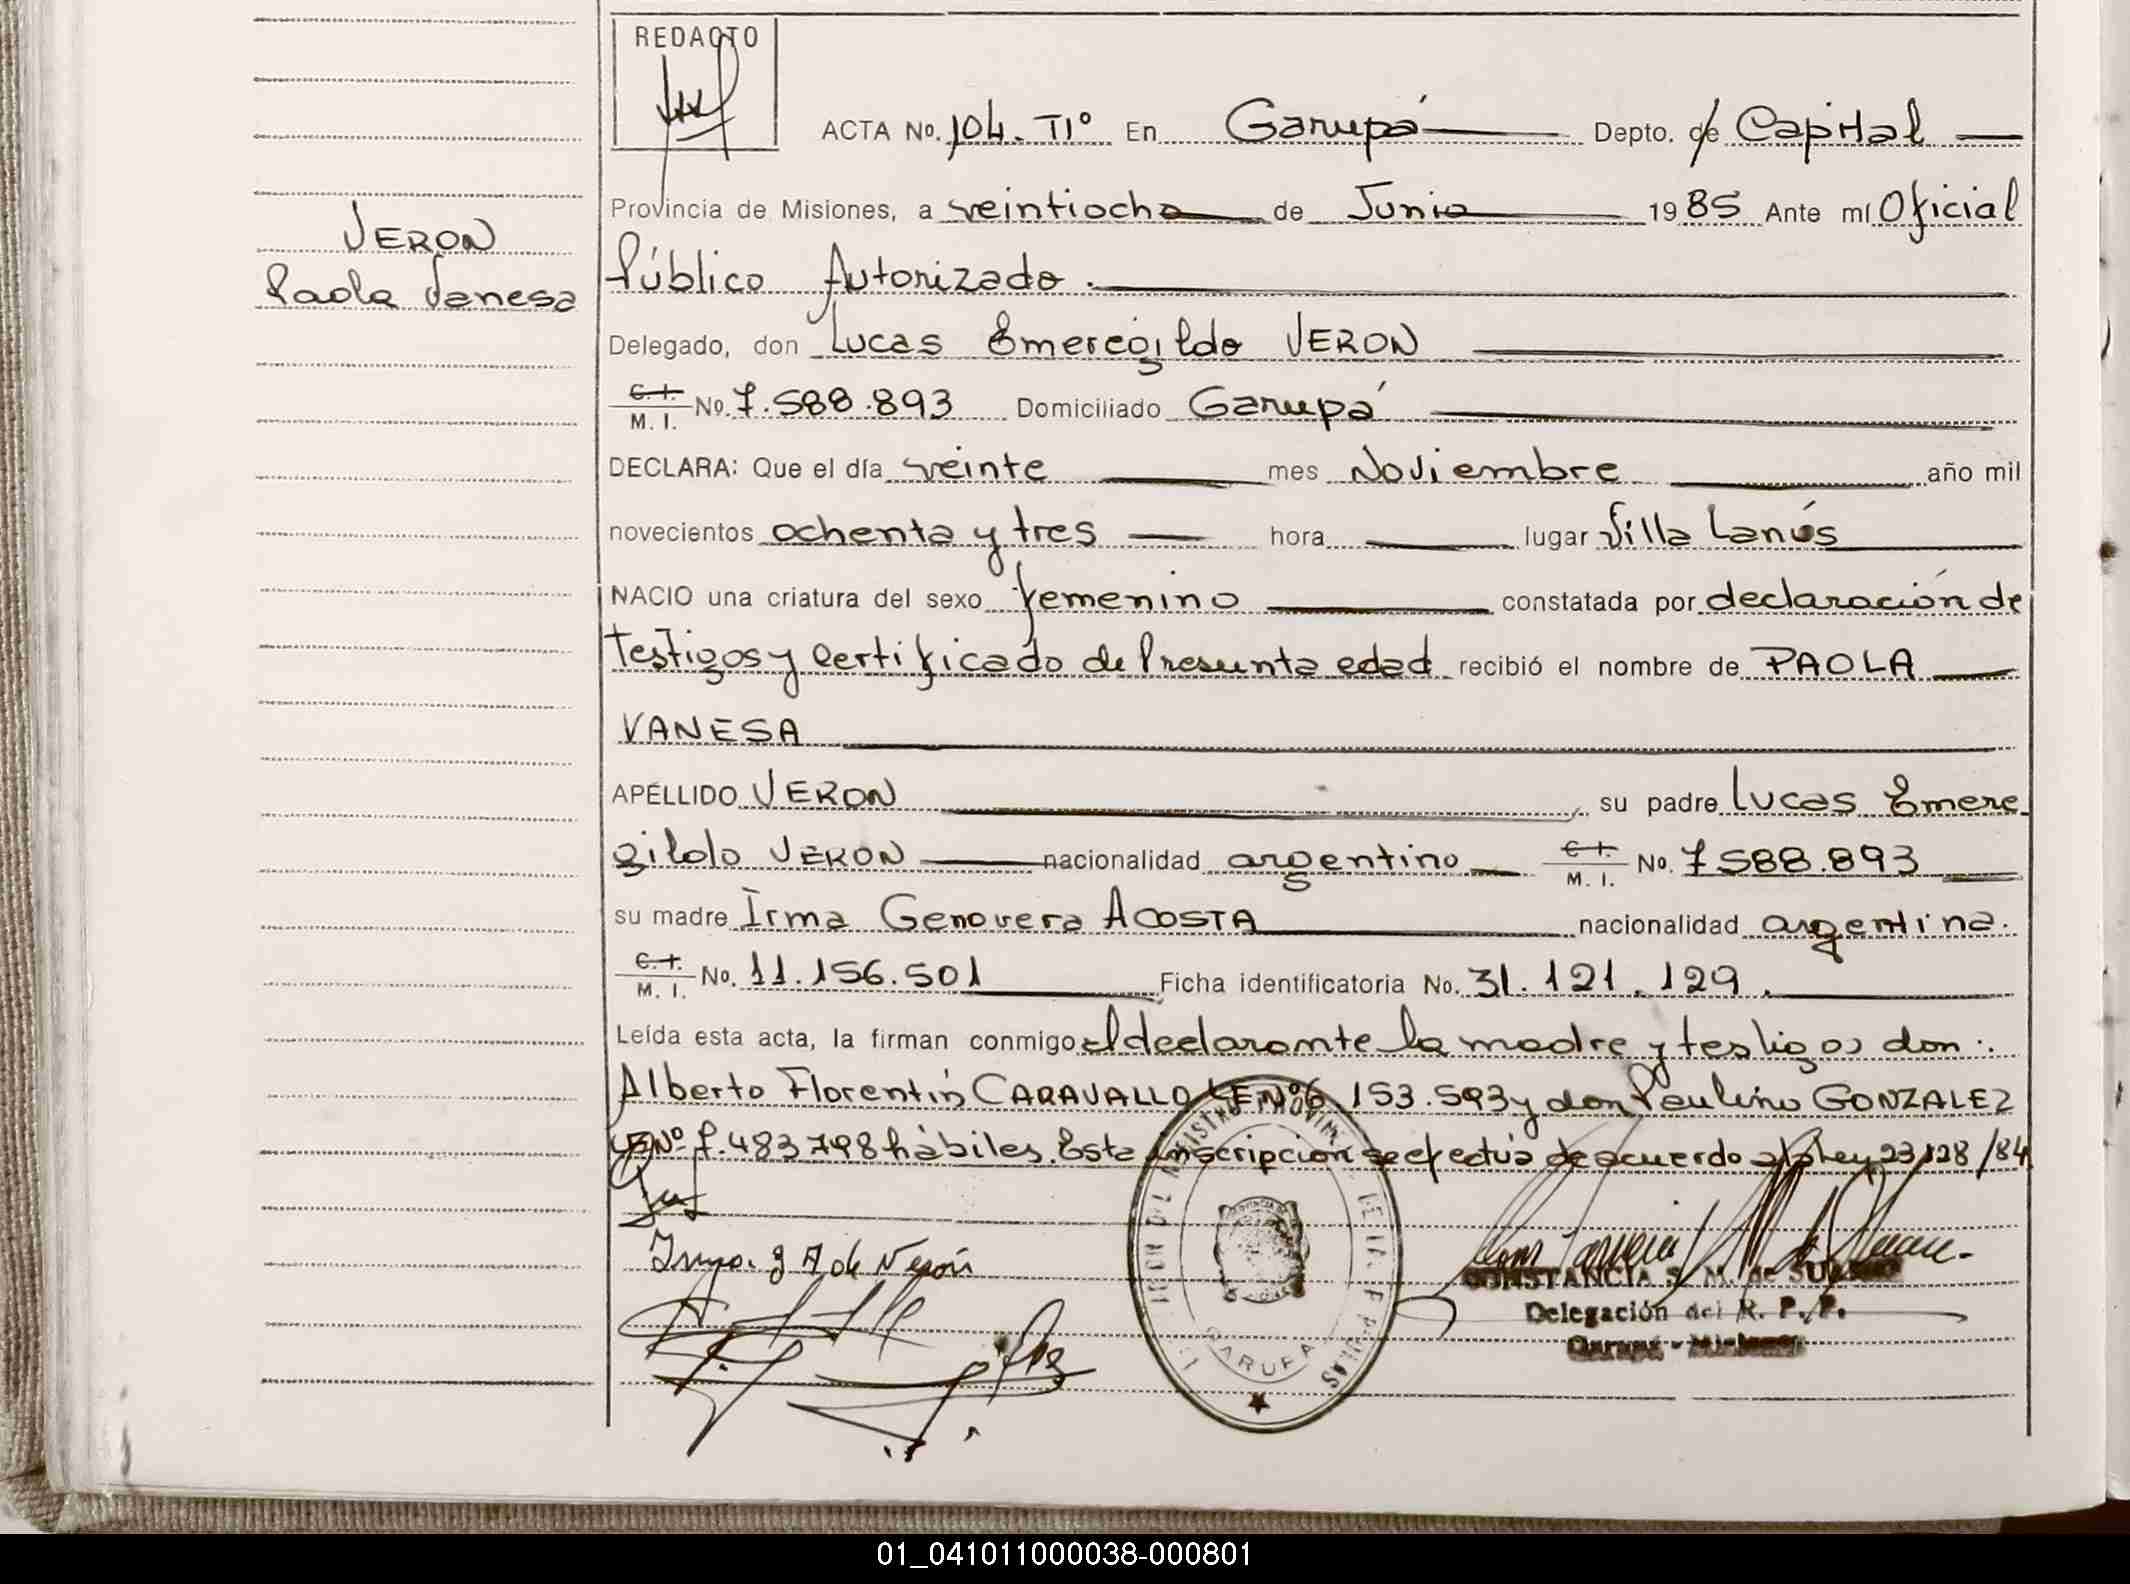 REDACTO
ACTA No. 104. TIº En Garupá Depto. de Capital
Provincia de Misiones, a veintiocho de Junio 1985 Ante mí Oficial
VERON
Paola Vanesa
Público Autorizado.
Delegado, don Lucas Emeregildo VERON
C. I.
M. I. No. 7.588.893 Domiciliado Garupá
DECLARA: Que el día veinte mes Noviembre año mil
novecientos ochenta y tres hora lugar Villa Lanús
NACIO una criatura del sexo femenino constatada por declaración de
testigos y certificado de Presunta edad recibió el nombre de PAOLA
VANESA
APELLIDO VERON su padre Lucas Emere
gildo VERON nacionalidad argentino C. I.
M. I. No. 7.588.893
su madre Irma Genovera ACOSTA nacionalidad argentina.
C. I.
M. I. No. 11.156.501 Ficha identificatoria No. 31.121.129.
Leída esta acta, la firman conmigo el declarante la madre y testigos don:
Alberto Florentín CARAVALLO LE Nº 6 153.593 y don Paulino GONZALEZ
LE Nº 7.483 798 hábiles. Esta inscripción se efectúa de acuerdo a la Ley 23 128/84
Irma. g A de Verón
CONSTANCIA S. M. de
Delegación del R. P. P.
Garupá - Misiones
GARUPA
01_041011000038-000801